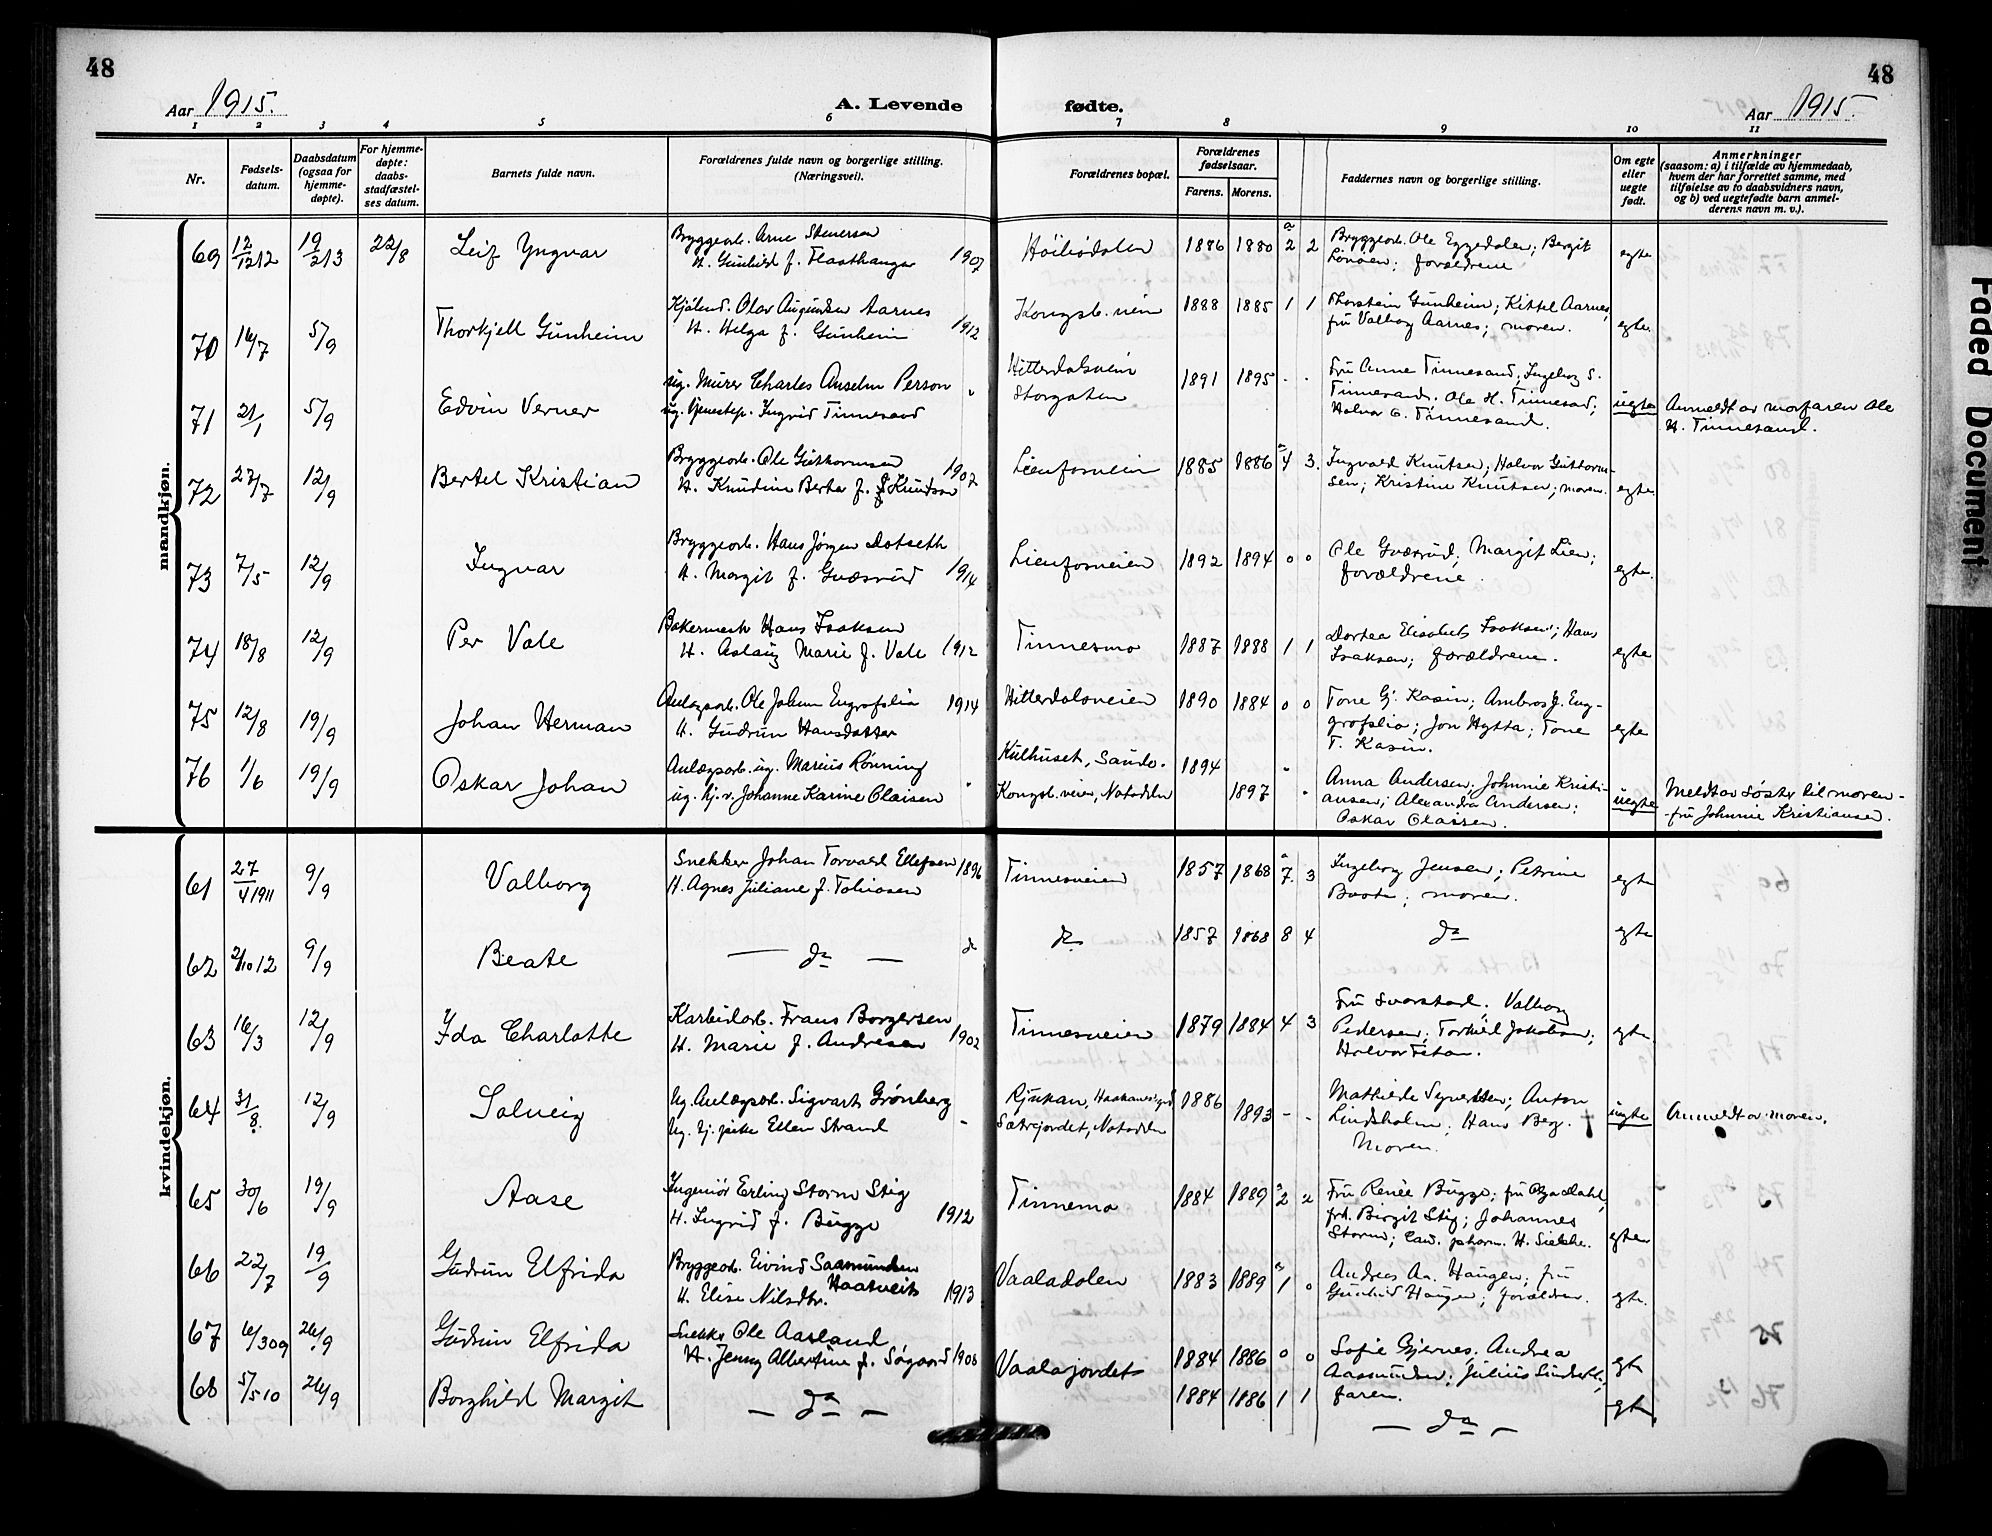 48
48
Aar 1915.
A. Levende
fødte.
Aar 1915.
1 2 3 4 5 6 7 8 9 10 11
Nr.
Fødsels-
datum.
Daabsdatum
(ogsaa for
hjemme-
døpte).
For hjemme-
døpte:
daabs-
stadfæstel-
ses datum.
Barnets fulde navn.
Forældrenes fulde navn og borgerlige stilling.
(Næringsvei).
Forældrenes bopæl.
Forældrenes
fødselsaar.
Farens. Morens.
Faddernes navn og borgerlige stilling.
Om egte
eller
uegte
født.
Anmerkninger
(saasom: a) i tilfælde av hjemmedaab,
hvem der har forrettet samme, med
tilføielse av to daabsvidners navn,
og b) ved uegtefødte barn anmel-
derens navn m. v.).
mandkjøn.
69 12/12 12 19/2 13 22/8 Leif Yngvar
Bryggearb. Arne Stenersen
H. Gunhild f. Flaathanger 1907
1886 1880 2 2
Bryggearb. Ole Eggedalen; Bergit
forældrene
egte
70 16/7 5/9 Thorkjell Gunheim
Olav Augundsen Aarnes
H. Helga f. Gunheim 1912
Kongsb. veien 1888 1885 1 1
Thorstein Gunheim; Kittel Aarnes,
fru Valborg Aarnes; moren.
egte
71 21/1 5/9 Edvin Verner
ug. Murer Charles Anselm Person
ug. tjenestep. Ingrid Tinnesand
Hitterdalsveien
Storgaten
1891 1895 - -
Fru Anne Tinnesand, Ingeborg S.
Tinnesand. Ole H. Tinnesand;
Halvor O. Tinnesand.
uegte
Anmeldt av morfaren Ole
H. Tinnesand.
72 27/7 12/9 Bertel Kristian
Bryggearb. Ole Guthormsen 1907
H. Knudine Berta f. Knudsen
Lienfosveien 1885 1886 4 3.
Ingvald Knutsen; Halvor Guttorm-
sen; Kristine Knutsen; moren.
egte
73 7/5 12/9 Ingvar
Bryggearb. Hans Jørgen Dotseth
H. Margit f. Gvæsrud 1914
Lienfosveien 1892 1894 0 0
Ole Gvæsrud; Margit Lien;
forældrene.
egte.
74 18/8 12/9 Per Vale
Bakermest. Hans Isaksen
H. Aslaug Marie f. Vale 1912
Tinnesmo 1887 1888 1 1
Dortea Elisabet Isaksen; Hans
Isaksen; forældrene.
egte
75 12/8 19/9 Johan Herman
Anlægsarb. Ole Johan Engrafslia 1914
H. Gudrun Hansdatter
Hitterdalsveien 1890 1884 0 0
Tone G. Kasin; Ambros J. Eng-
grafslia; Jon Hytta; Tone
T. Kasin.
egte
76 1/6 19/9 Oskar Johan
Anlægsarb. ug. Marius Rønning
ug. tj. v. Johanne Karine Olaisen
Kulhuset, Saude.
Kongsb. veien, Notodden
1894 1897
Anna Andersen; Johnnie Kristi-
ansen; Alexandra Andersen;
Oskar Olaisen.
uegte
Meldt av søster til moren -
fru Johnnie Kristiansen.
kvindekjøn.
61 27/4 1911 9/9 Valborg
Snekker Johan Torvald Ellefsen 1896
H. Agnes Juliane f. Tobiasen
Tinnesveien 1857 1868 7. 3
Ingeborg Jensen; Petrine
moren.
egte
62 2/10 12 9/9 Beate
— do — do
do 1857 1868 8 4
do
egte
63 16/3 12/9 Ida Charlotte
Karbidarb. Frans Borgersen
H. Marie f. Andresen 1902
Tinnesveien 1879 1884 4 3
Fru Svarstad; Valborg
Pedersen; Torkild Jakobsen;
Halvor Tetan.
egte.
64 31/8. 12/9 Solveig
Ug. Anlægsarb. Sigvart Grønberg
Ug. tj. pike Ellen Strand -
Rjukan,
Sætrejordet, Notodden
1886 1893 - -
Mathilde Syvertsen; Anton
Lindholm; Hans Berg.
Moren.
uegte
Anmeldt av moren.
65 30/6 19/9 Aase
Ingeniør Erling Storm Stig
H. Ingrid f. Bugge 1912
Tinnemo 1884 1889 2 2
Fru Renée Bugge; fru Dahl,
frk. Birgit Stig; Johannes
Storm; cand. pharm. H. Siekke.
egte
66 22/7 19/9 Gudrun Elfrida
Bryggearb. Eivind Saamunden
Haatveit
H. Elise Nilsdtr. 1913
Vaaladalen 1883 1889 1 0
Andres Aa. Haugen; fru
Gunhild Haugen; forældrene.
egte.
67 6/3 09 26/9 Gudrun Elfrida
Snekker Ole Aasland
H. Jenny Albertine f. Søgaard 1908
Vaalajordet 1884 1886 0 0
Sofie Gjernes, Andrea
Aasmundsen; Julius
faren.
egte
68 5/5 10 26/9 Borghild Margit
— do —
1884 1886 1 1
— do —
egte.
Faded Document